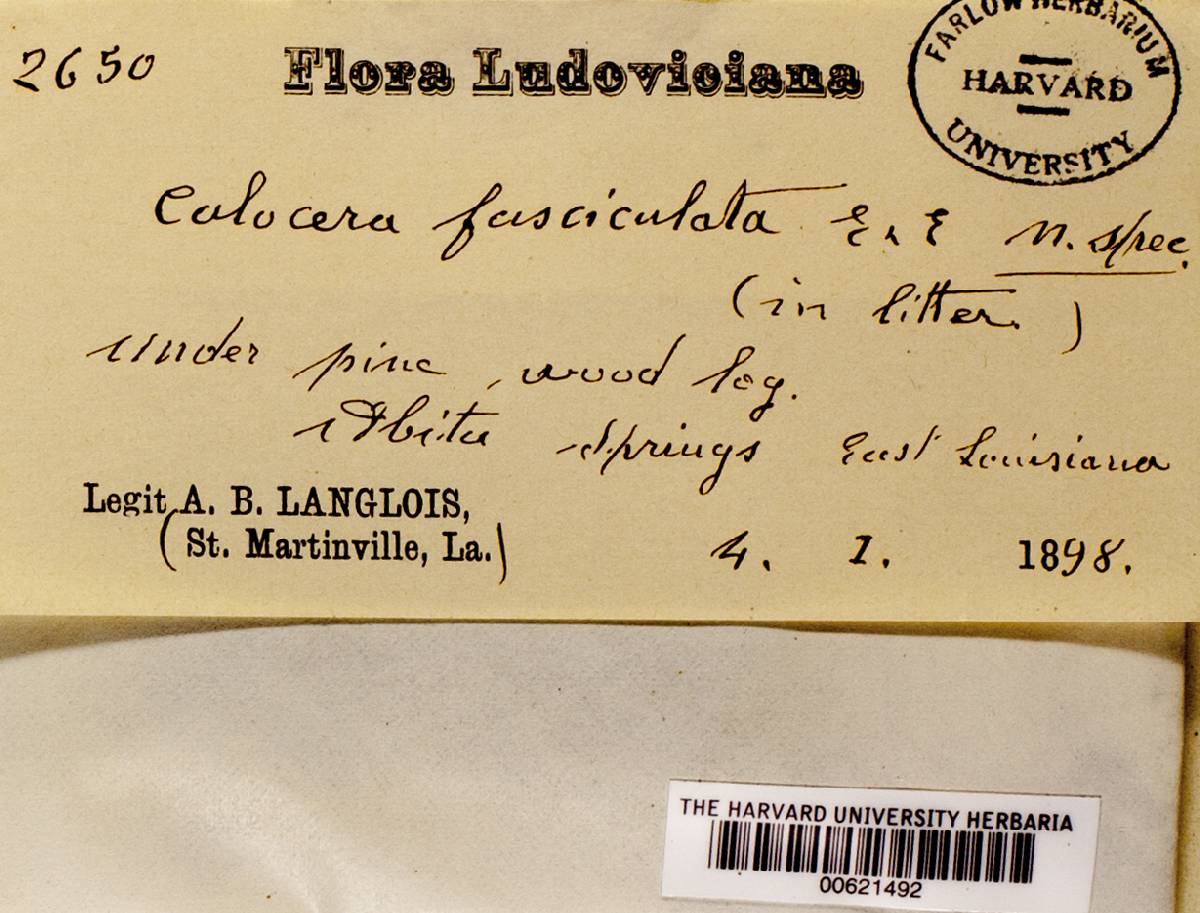 2650
Flora Ludoviciana
FARLOW HERBARIUM
HARVARD
UNIVERSITY
Calocera fasciculata E. & E n. spec.
(in litter.)
under pine, wood log.
Abita Springs East Louisiana
Legit A. B. LANGLOIS,
(St. Martinville, La.)
4. 1. 1898.
THE HARVARD UNIVERSITY HERBARIA
00621492